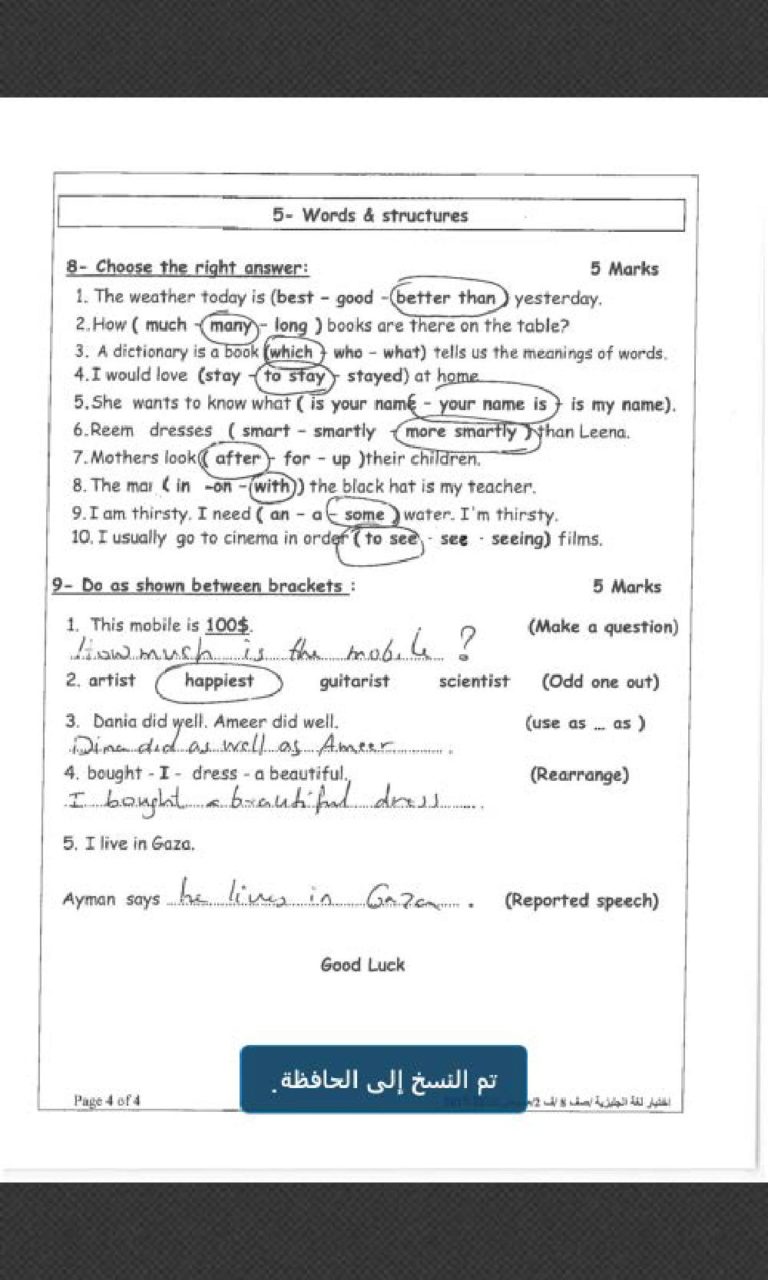 5- Words & structures
8- Choose the right answer: 5 Marks
1. The weather today is (best - good - better than) yesterday.
2. How ( much - many - long ) books are there on the table?
3. A dictionary is a book (which - who - what) tells us the meanings of words.
4. I would love (stay - to stay - stayed) at home
5. She wants to know what ( is your name - your name is - is my name).
6. Reem dresses ( smart - smartly - more smartly ) than Leena.
7. Mothers look ( after - for - up )their children.
8. The man ( in -on - with) ) the black hat is my teacher.
9. I am thirsty. I need ( an - a - some ) water. I'm thirsty.
10. I usually go to cinema in order ( to see - see - seeing) films.
9- Do as shown between brackets : 5 Marks
1. This mobile is 100$. (Make a question)
How much is the mobile ?
2. artist happiest guitarist scientist (Odd one out)
3. Dania did well. Ameer did well. (use as ... as )
Dina did as well as Ameer .
4. bought - I - dress - a beautiful. (Rearrange)
I bought a beautiful dress
5. I live in Gaza.
Ayman says he lives in Gaza . (Reported speech)
Good Luck
تم النسخ إلى الحافظة.
Page 4 of 4 اختبار لغة انجليزية /صف 8 /ف 2/